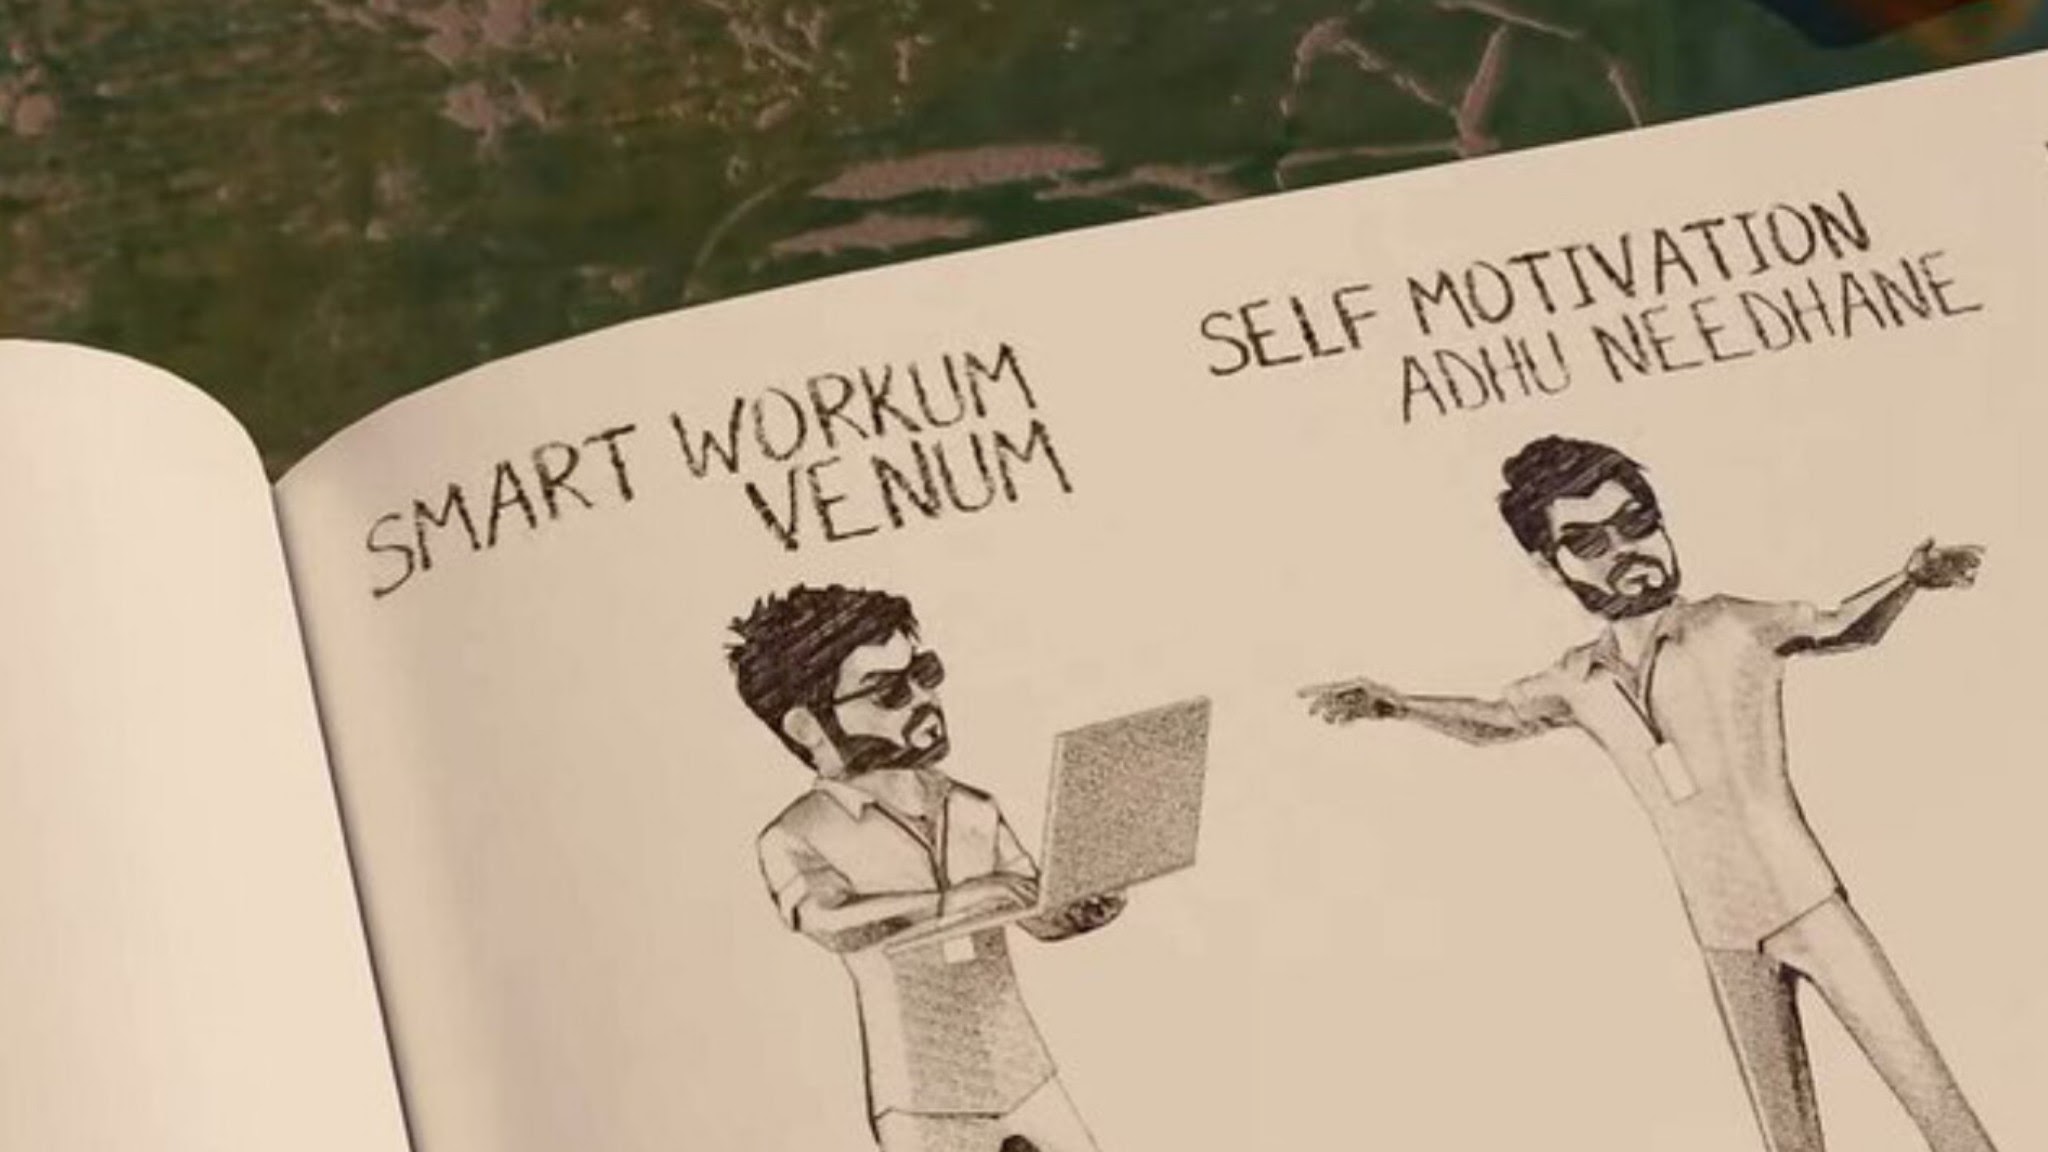 SMART WORKUM
VENUM
SELF MOTIVATION
ADHU NEEDHANE